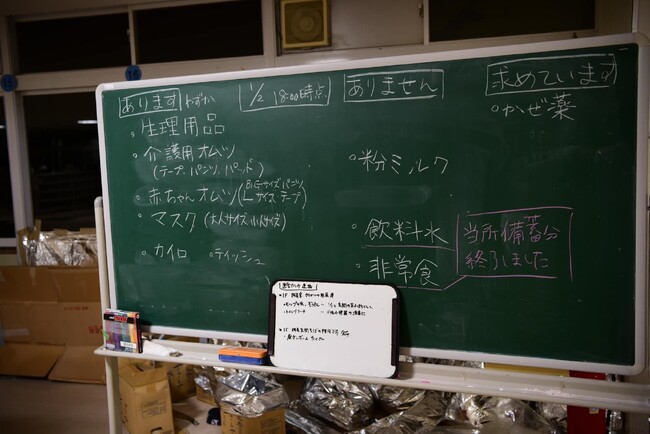 あります わずか
・生理用品
・介護用オムツ
(テープ、パンツ、パッド)
・赤ちゃんオムツ(BIGサイズ パンツ
Lサイズ テープ)
・マスク(大人サイズ、小人サイズ)
・カイロ ・ティッシュ
1/2 18:00時点
ありません
・粉ミルク
・飲料水
・非常食
当所備蓄分
終了しました
求めています
・かぜ薬